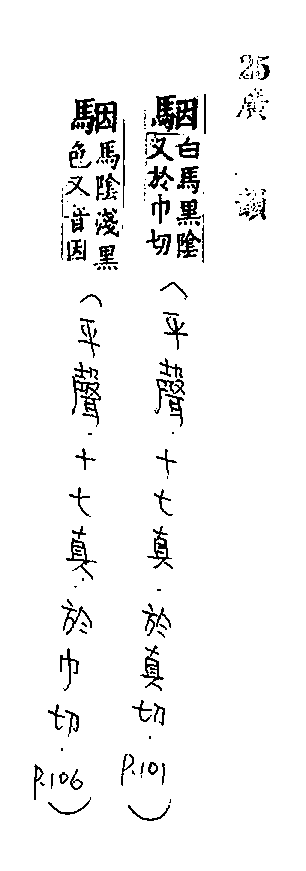 25廣 韻
駰白馬黑陰又於巾切(平聲.十七真.於真切.P.101)
駰馬陰淺黑色又音因(平聲.十七真.於巾切.P.106)